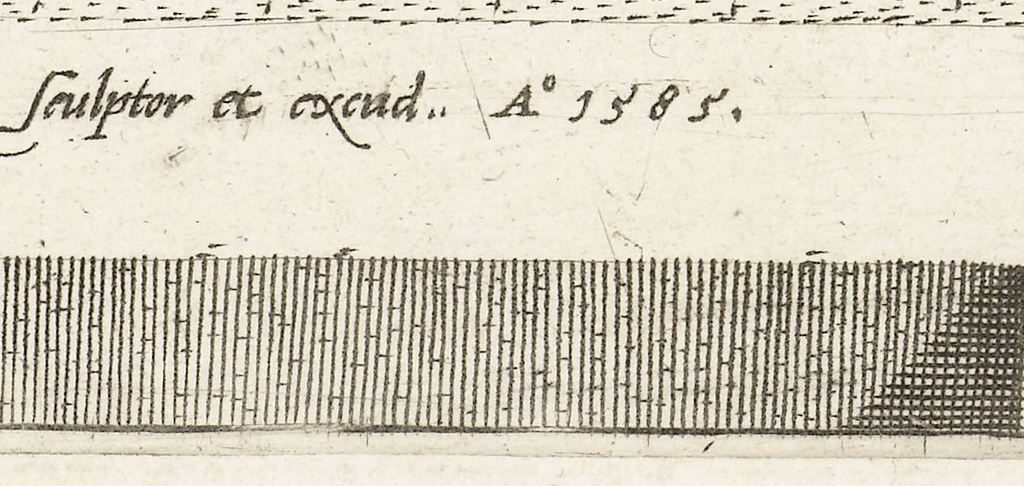 Sculptor et excud.. A° 1585.